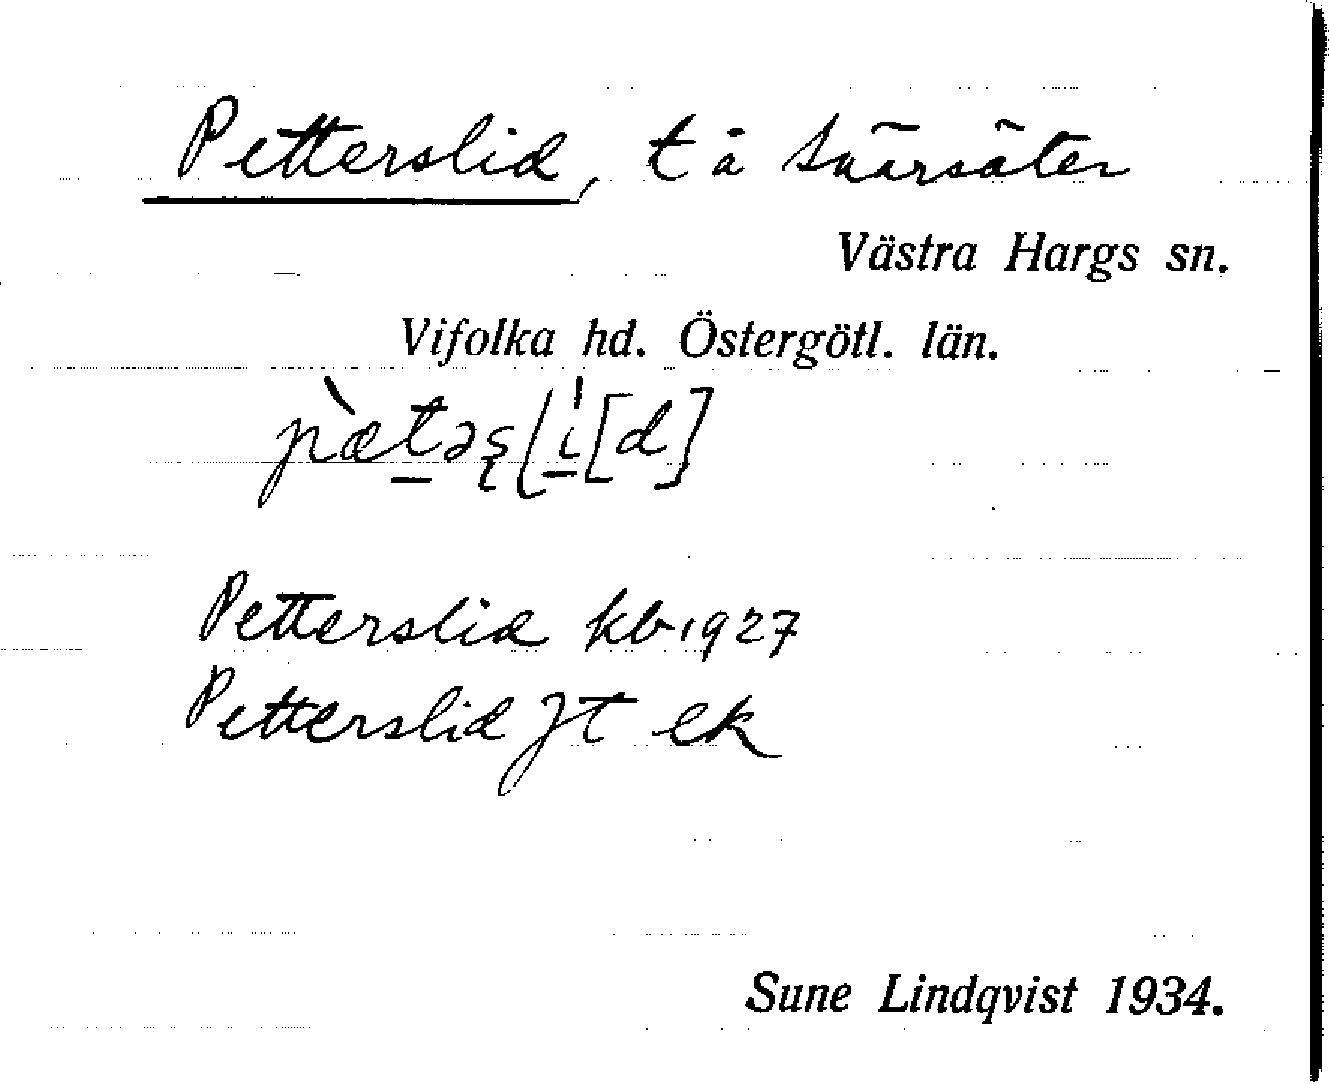 Petterslid, t å Snärsäter
Västra Hargs sn.
Vifolka hd. Östergötl. län.
pæ̀təʂlì[d]
Petterslid kb 1927
Petterslid Jt ek
Sune Lindqvist 1934.